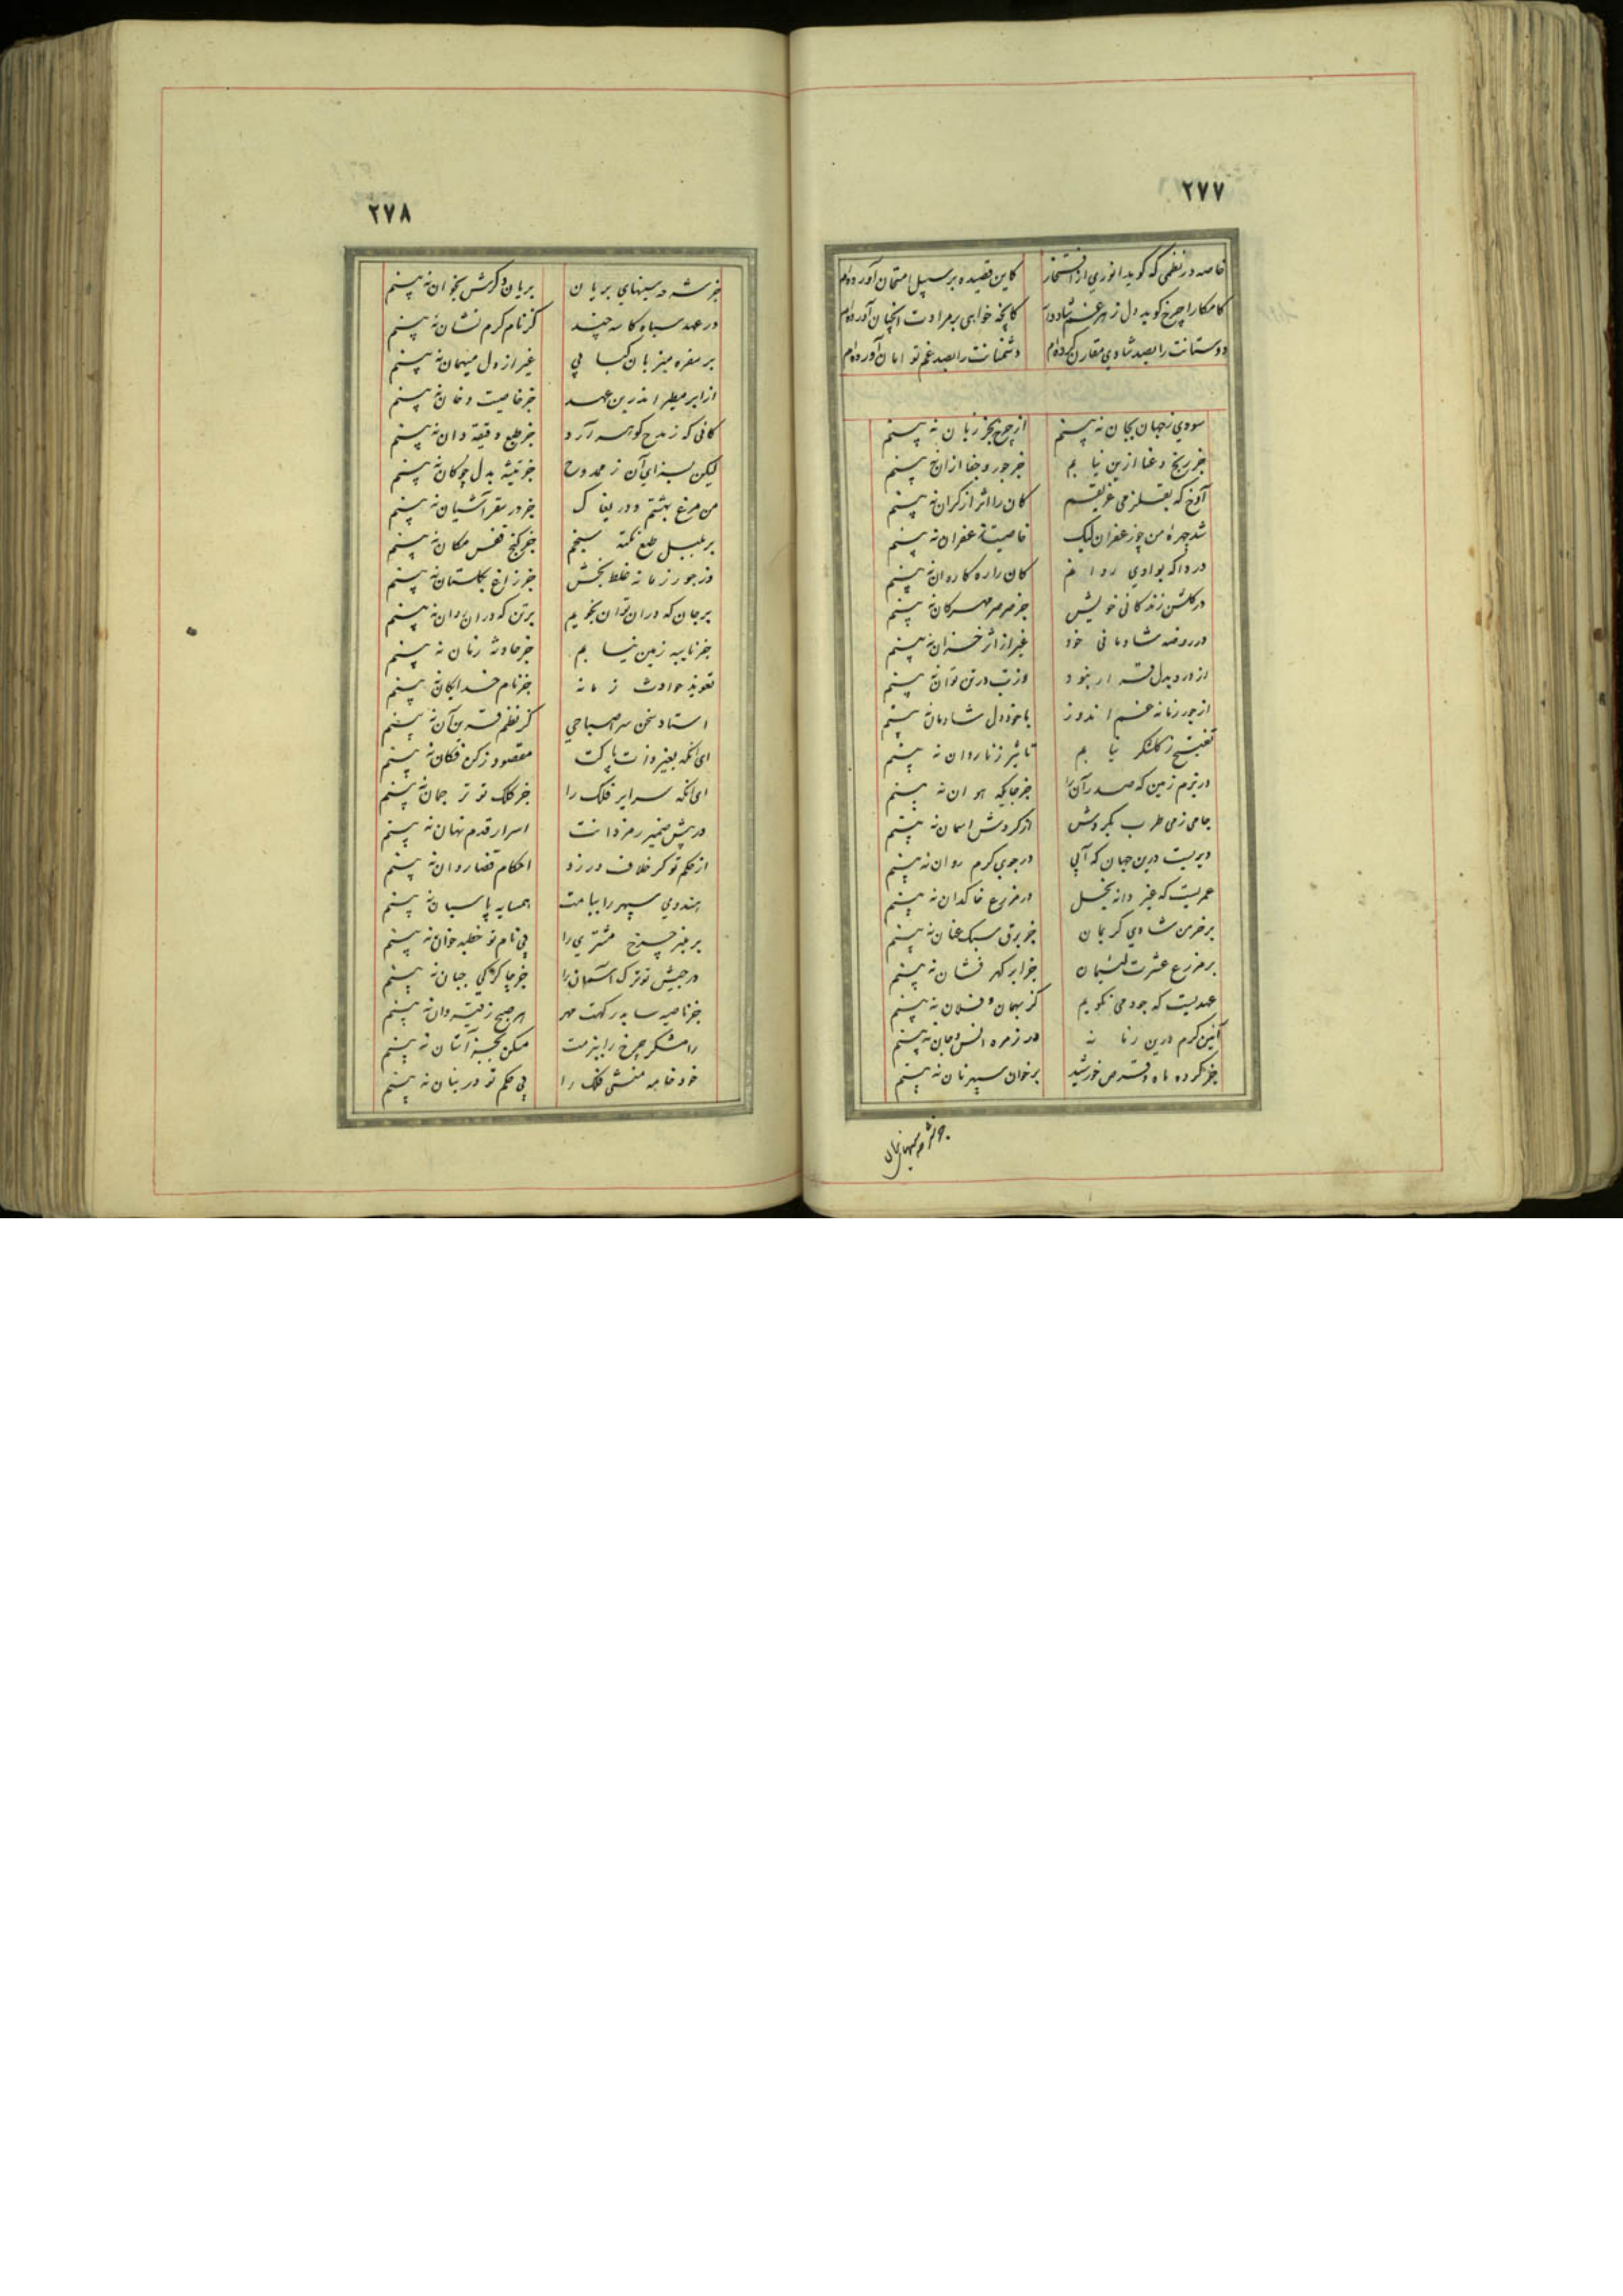 ۲۷۷
خاصه در نظمی که کوید انوری از افتخار کاین قصیده بر سبیل امتحان آورده‌ام
کامکارا چرخ کوید دل ز هر غم شاد دار کانچه خواهی بر مرادت آنچنان آورده‌ام
دوستانت را بصد شادی مقارن کرده‌ام دشمنانت را بصد غم توامان آورده‌ام
سودی ز جهان بجان نه بینم از چرخ بجز زیان نه بینم
جز رنج و عنا ازین نیابم جز جور و جفا ازان نه بینم
آوخ که بقلزمی غریقم کان را اثر از کران نه بینم
شد چهره من چو زعفران لیک خاصیت زعفران نه بینم
دردا که بوادی روانم کان را ره کاروان نه بینم
در کلشن زندکانی خویش جز صرصر مهرکان نه بینم
در روضه شادمانی خود غیر از اثر خزان نه بینم
از درد بدل قرار نبود وز تب در تن توان نه بینم
از جور زمانه غم اندوز با خود دل شادمان نه بینم
تفتیح ز کلشکر نیابم تاثیر ز ناردان نه بینم
در بزم زمین که صدر آن را جز جایکه هوان نه بینم
جامی ز می طرب بکردش از کردش اسمان نه بینم
دیریست درین جهان که آبی در جوی کرم روان نه بینم
عمریست که غیر دانه بخل در مزرع خاکدان نه بینم
بر خرمن شادی کریمان جز برق سبک عنان نه بینم
بر مزرع عشرت لئیمان جز ابر کهر فشان نه بینم
عهدیست که جود می نکویم کز بهمان و فلان نه بینم
آئین کرم درین زمانه در زمره انس و جان نه بینم
جز کرده ماه و قرص خورشید بر خوان سپهر نان نه بینم
۲۷۸
جز شرحه سینهای بریان بریان و کرش بخوان نه بینم
در عهد سیاه کاسه چند کز نام کرم نشان نه بینم
بر سفره میزبان کبابی غیر از دل میهمان نه بینم
از ابر مطیر اندرین عهد جز خاصیت دخان نه بینم
کانی که ز مدح کوهر آرد جز طبع دقیقه دان نه بینم
لیکن بسزای آن ز ممدوح جز تیشه بدل چو کان نه بینم
من مرغ بهشتم و دریغا ک جز در سقر آشیان نه بینم
بر بلبل طبع نکته سنجم جز کنج قفس مکان نه بینم
وز جور زمانه غلط بخش جز زاغ بکلستان نه بینم
بر جان که دران توان نجویم بر تن که دران روان نه بینم
جز نایبه زمین نیابم جز حادثه زمان نه بینم
تعویذ حوادث زمانه جز نام خدایکان نه بینم
استاد سخن سر صباحی کز نظم قرین آن نه بینم
ای آنکه بغیر ذات پاکت مقصود ز کن فکان نه بینم
ای آنکه سرایر فلک را جز کلک تو ترجمان نه بینم
در پیش ضمیر رمزدانت اسرار قدم نهان نه بینم
از حکم تو کر خلاف ورزد احکام قضا روان نه بینم
هندوی سپهر را ببامت همسایه پاسبان نه بینم
بر منبر چرخ مشتری را بی نام تو خطبه خوان نه بینم
در جیش تو ترک آسمان را جز چاکرکی جبان نه بینم
جز ناصیه سا بدرکهت مهر هر صبح ز قیروان نه بینم
رامشکر چرخ را ببزمت مسکن بجز آستان نه بینم
خود خامه منشی فلک را بی حکم تو در بنان نه بینم